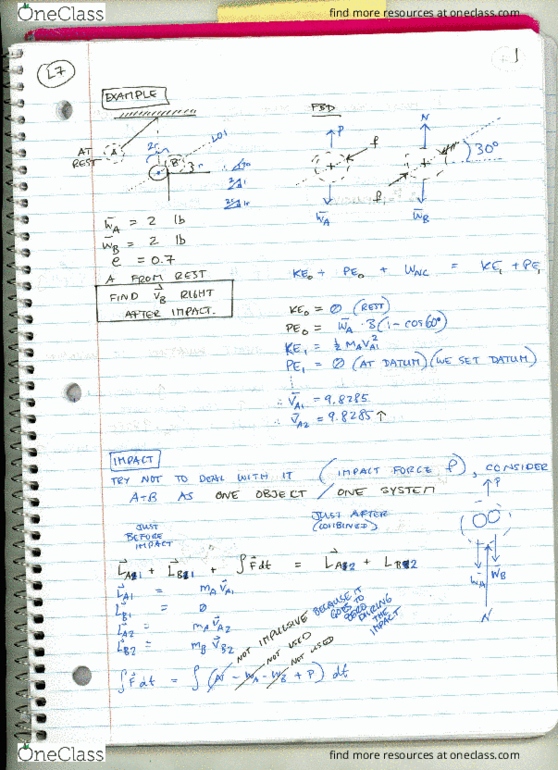 OneClass
find more resources at oneclass.com
L7
1
EXAMPLE
FBD
AT
REST
A
B
LOI
P
f
N
30°
f
W̄A
W̄B
W̄A = 2 lb
W̄B = 2 lb
e = 0.7
A FROM REST
FIND V⃗B RIGHT
AFTER IMPACT.
KE₀ + PE₀ + WNC = KE₁ + PE₁
KE₀ = 0 (REST)
PE₀ = W̄A · 3(1 - cos60°)
KE₁ = ½ MAVA1²
PE₁ = 0 (AT DATUM) (WE SET DATUM)
∴ V̄A1 = 9.8285
V̄A2 = 9.8285 ↑
IMPACT
TRY NOT TO DEAL WITH IT (IMPACT FORCE f), CONSIDER
A+B AS ONE OBJECT / ONE SYSTEM
P
JUST
BEFORE
IMPACT
JUST AFTER
(COMBINED)
L⃗A1 + L⃗B1 + ∫F⃗dt = L⃗A2 + LB2
WA
WB
N
L⃗A1 = mAV⃗A1
L⃗B1 = 0
L⃗A2 = mAV⃗A2
L⃗B2 = mBV⃗B2
NOT IMPULSIVE
BECAUSE IT
GOES TO
ZERO DURING
THE
IMPACT
NOT USED
NOT USED
∫F⃗dt = ∫(N - WA - WB + P) dt
OneClass
find more resources at oneclass.com